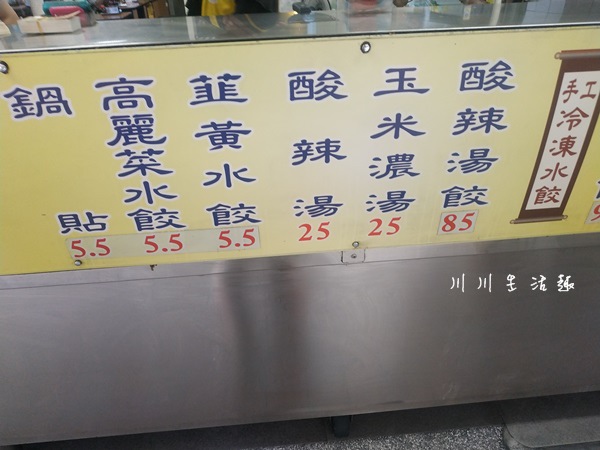 鍋貼
5.5
高麗菜水餃
5.5
韮黃水餃
5.5
酸辣湯
25
玉米濃湯
25
酸辣湯餃
85
手工
冷凍水餃
川川生活趣